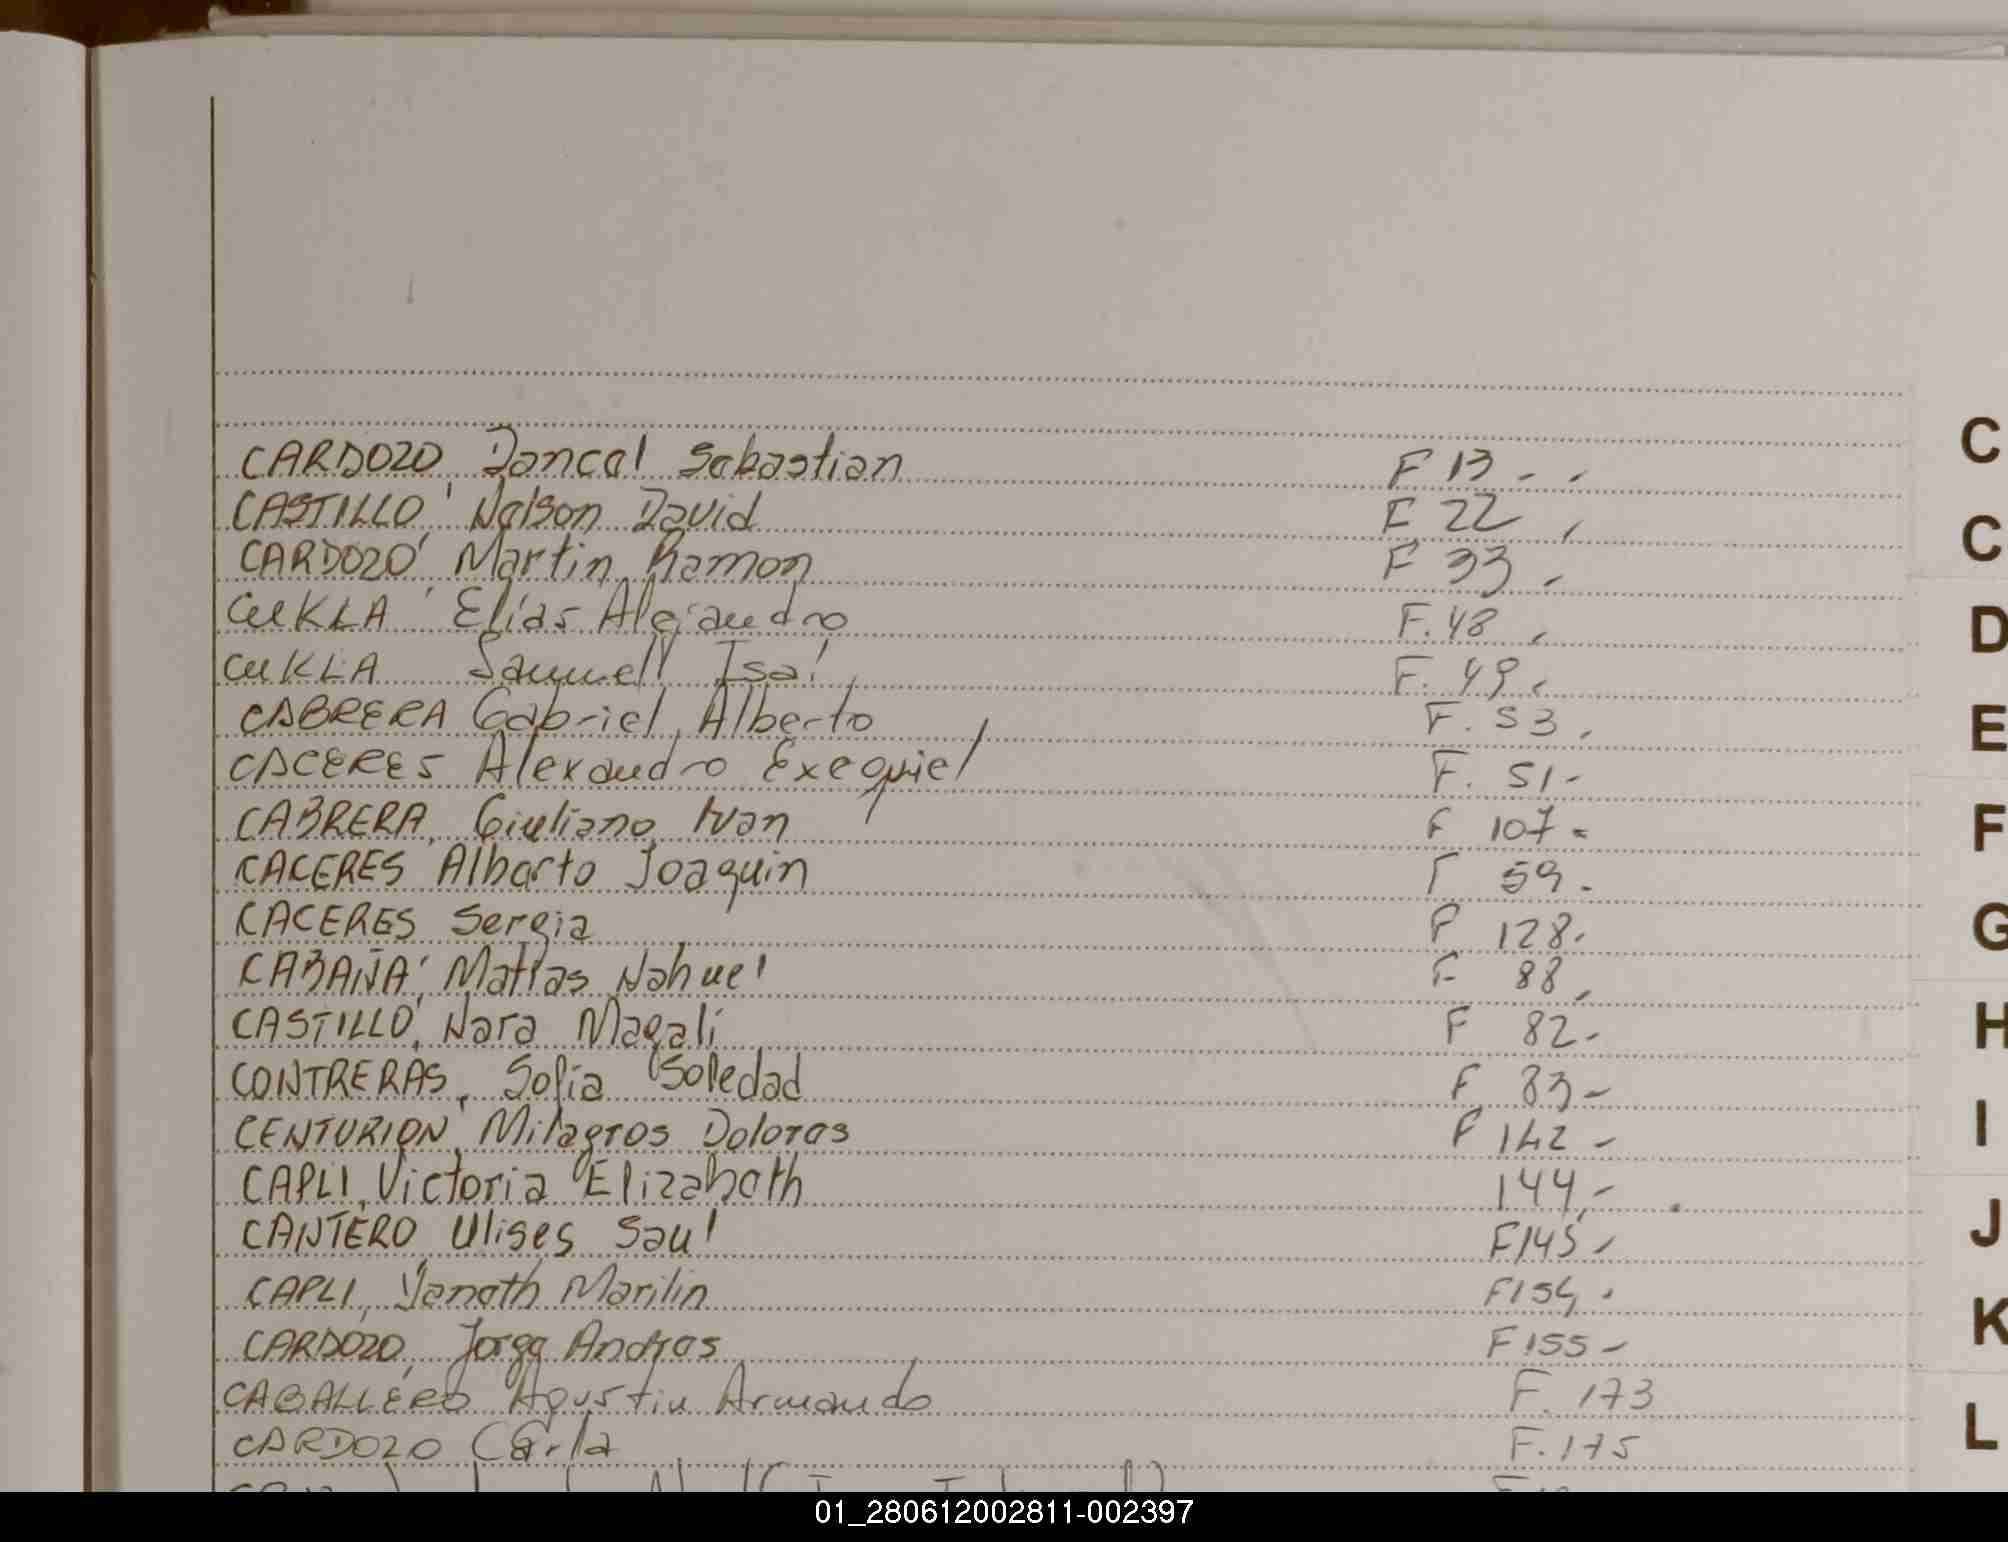 CARDOZO, Dancel Sebastian F 13 - -
CASTILLO, Nelson David F 22 -
CARDOZO, Martin Ramon F 33 -
CUKLA, Elías Alejandro F. 48 -
CUKLA Samuell Isaí F. 49 -
CABRERA Gabriel Alberto F. 53 -
CACERES Alexandro Exequiel F. 51 -
CABRERA, Giuliano Ivan F 107 -
CACERES Alberto Joaquin F 59 -
CACERES Sergia F 128 -
CABAÑA, Matias Nahuel F 88 -
CASTILLO, Nara Magali F 82 -
CONTRERAS, Sofia Soledad F 83 -
CENTURION, Milagros Dolores F 142 -
CAPLI, Victoria Elizabeth 144, -
CANTERO Ulises Saul F 145 -
CAPLI, Yaneth Marilin F 154 -
CARDOZO, Jorge Andres F 155 -
CABALLERO Agustin Armando F. 173
CARDOZO Carla F. 175
C
C
D
E
F
G
H
I
J
K
L
01_280612002811-002397